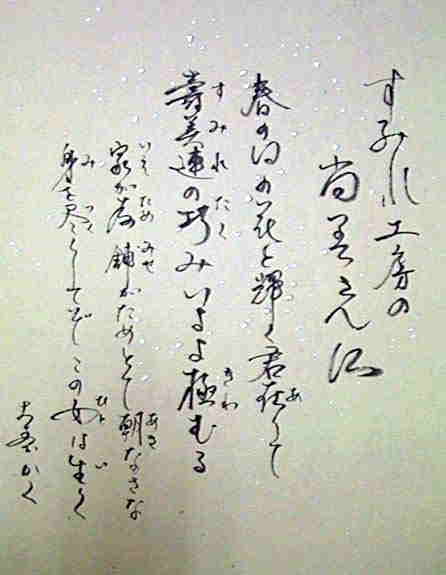 すみれ工房の
尚美さん江
春の日の花と輝く君在りて
壽美連の巧みいよよ極むる
すみれ たく きわ あ
家が為 舗がためとて朝なさな
いえ ため みせ あさ
身を尽くしてぞこの女は生く
み つく ひと い
かく